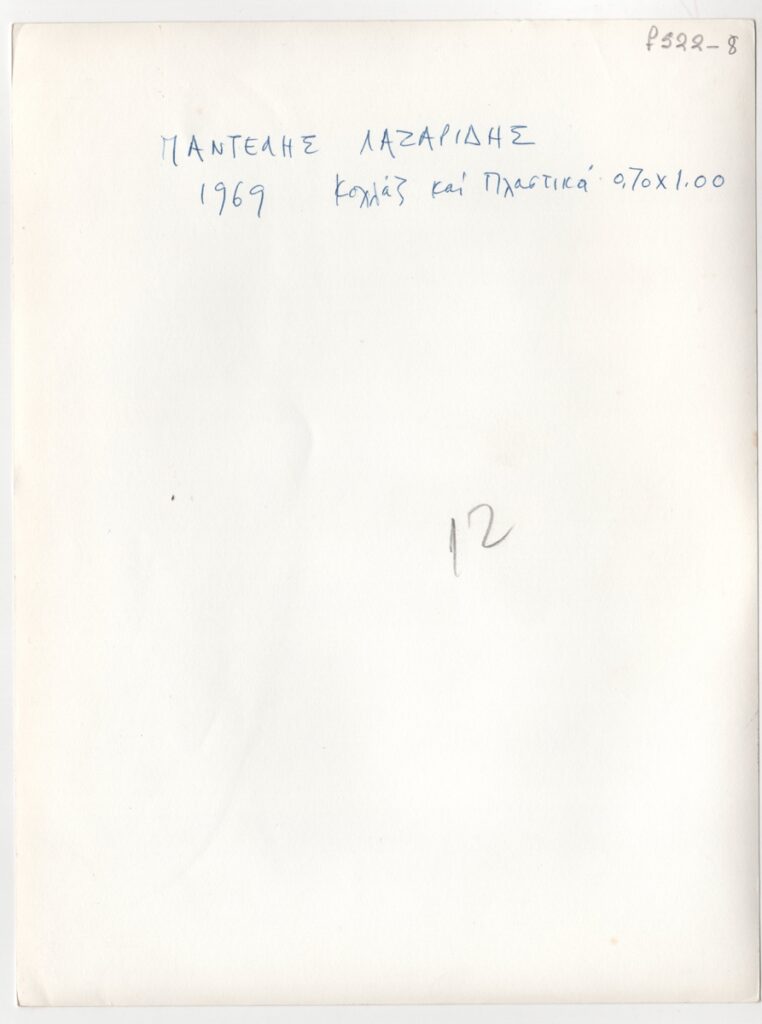 f522-8
ΠΑΝΤΕΛΗΣ ΛΑΖΑΡΙΔΗΣ
1969 Κολλάζ καί Πλαστικά 0.70 x 1.00
12